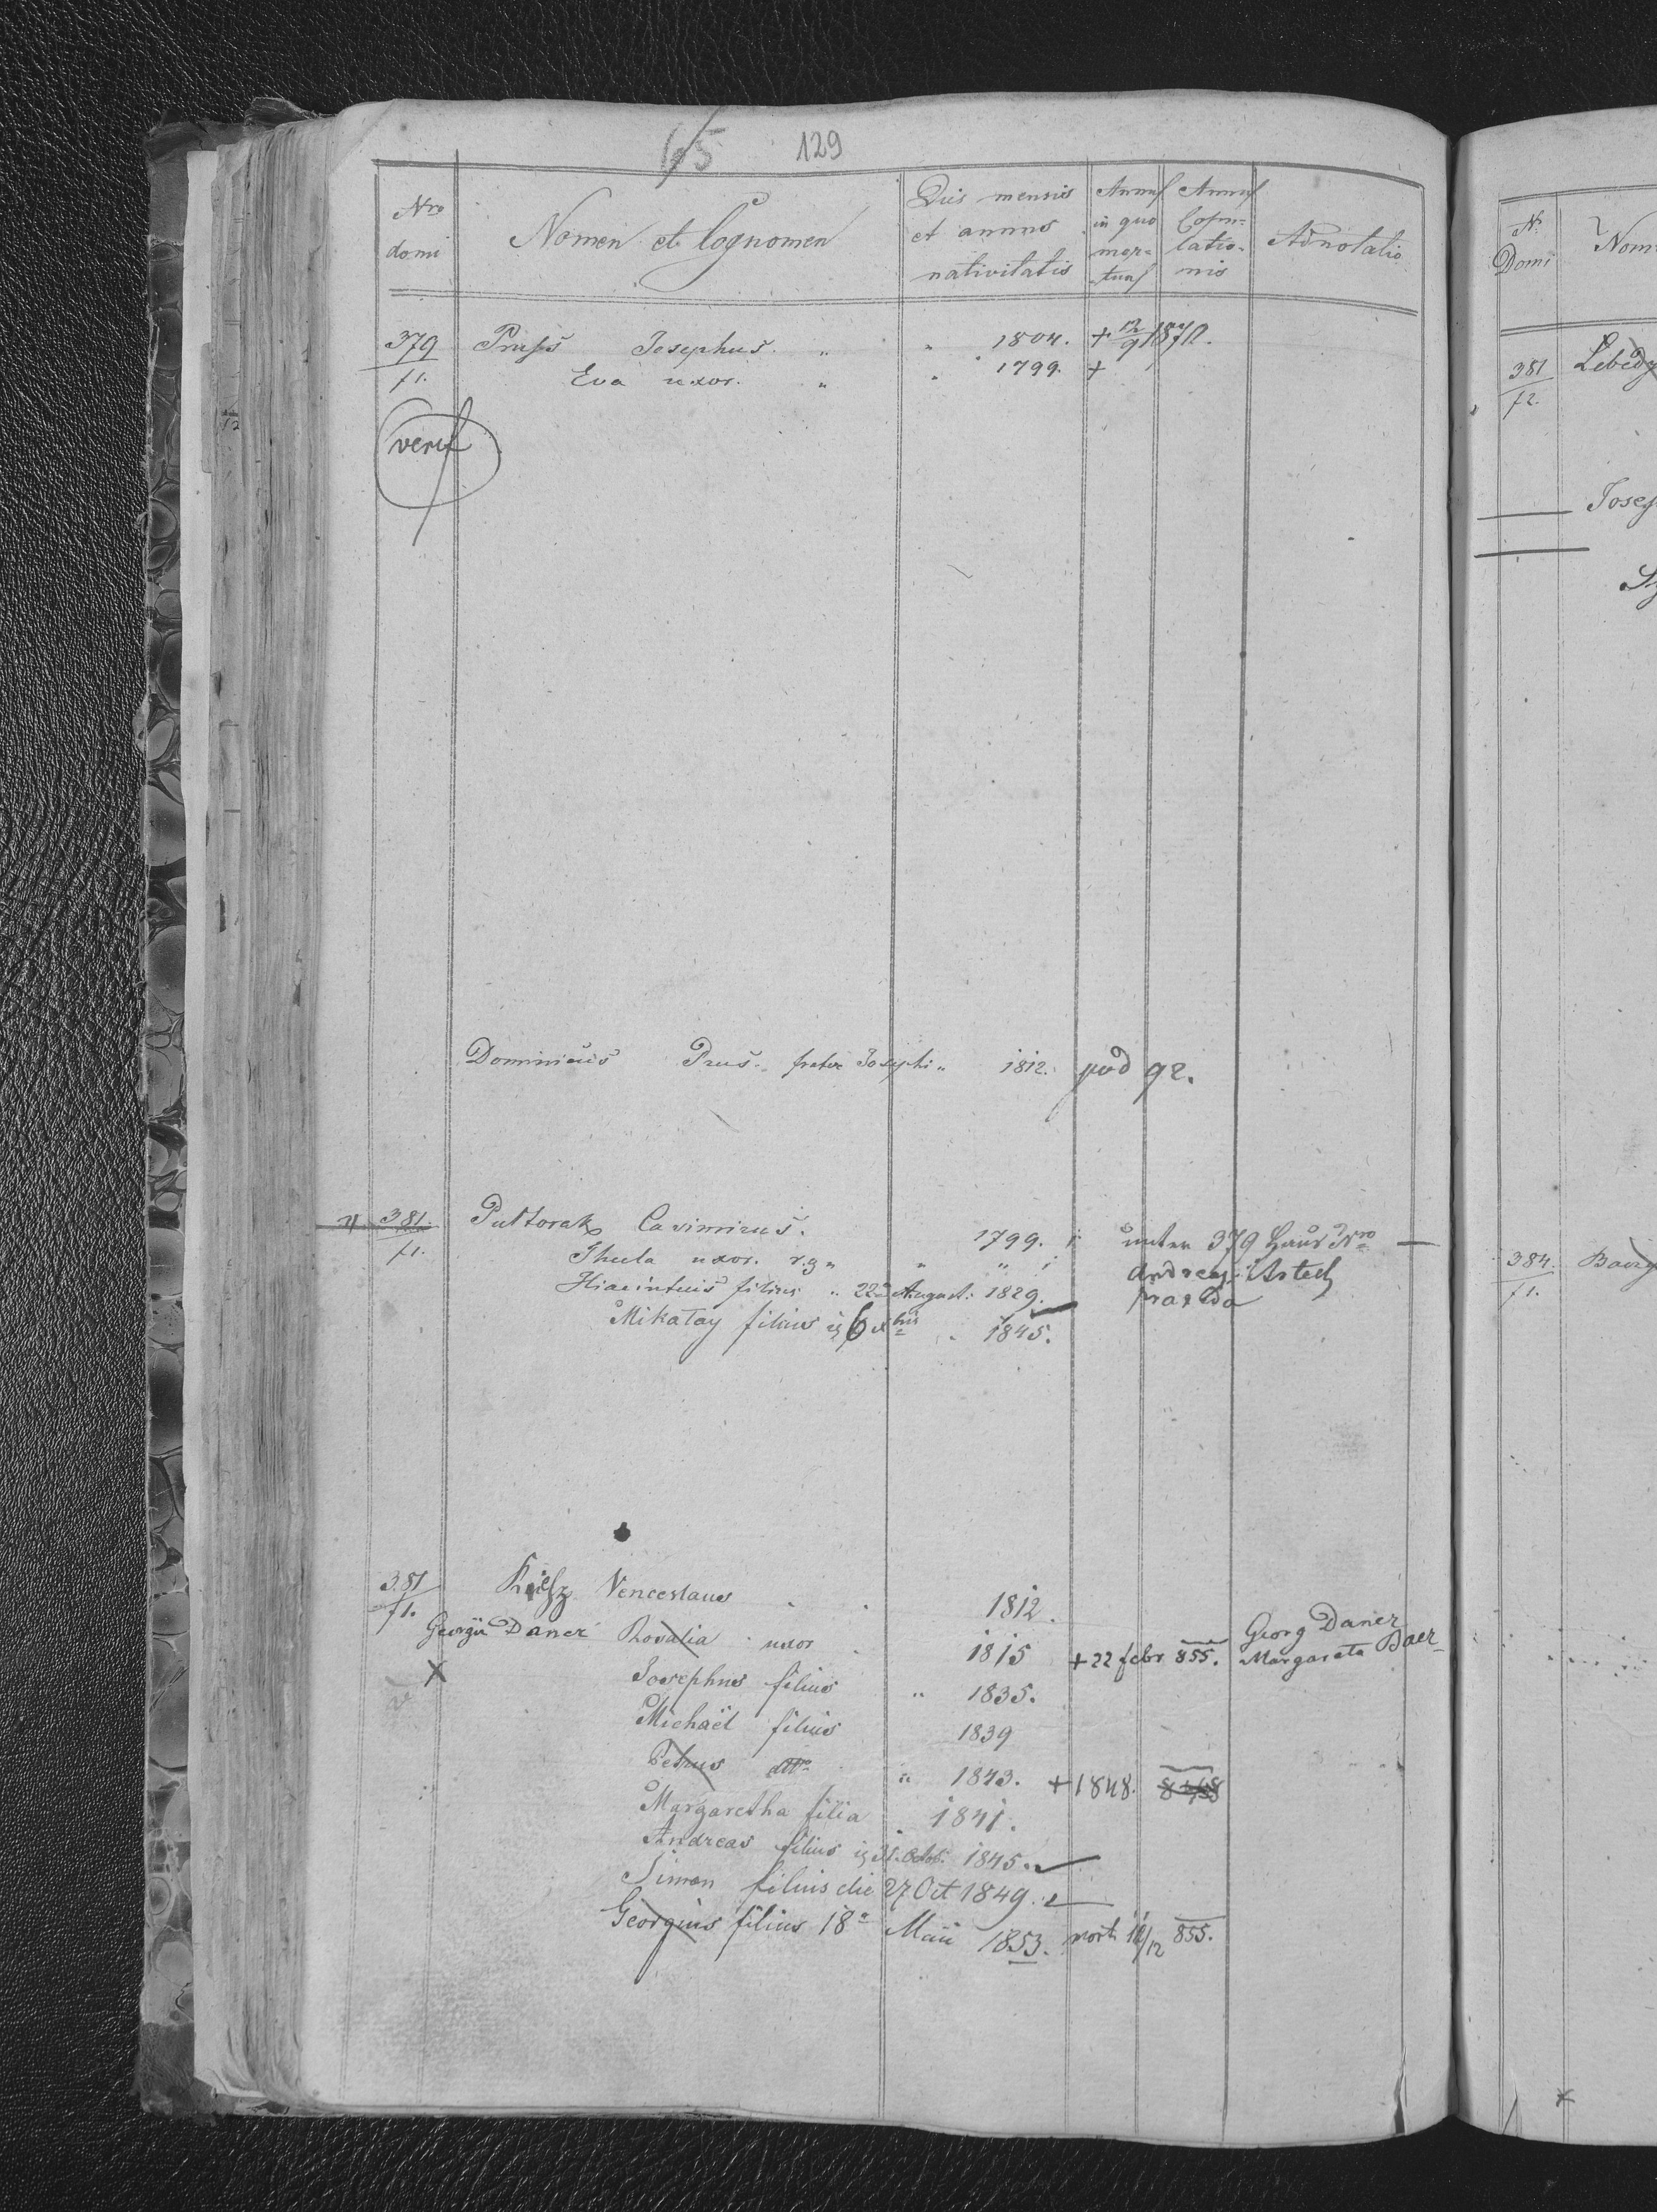 65 129
Nro domi
Nomen et Cognomen
Dies mensis et annus nativitatis
Annus in quo mortuus
Annus Copulationis
Adnotatio
379 Pruss Josephus. " " 1804. + 12/9 1872.
f1. Eva uxor. " " 1799. +
verif
Dominicus Prus. frater Josephi " 1812. pod 92.
381. Puttorak Casimirus. 1799. unten 379 Haus Nro
f1. Thecla uxor. r. g. " " "
Hiacintus filius " 22 August: 1829. Andreas
Mikołay filius 6 xbris " 1845.
381 Venceslaus 1812.
f1.
Georgii Daner Rosalia uxor 1815 + 22 febr 855. Georg Daner
X Margareta Baer
Josephus filius " 1835.
Michaël filius 1839
Petrus dtto " 1843. + 1848.
Margaretha filia 1841.
Andreas filius 31. Octob: 1845.
Simon filius die 27 Oct 1849.
Georgius filius 18a Maii 1853. mort 12/12 855.
No Domi
381
f2.
384.
f1.